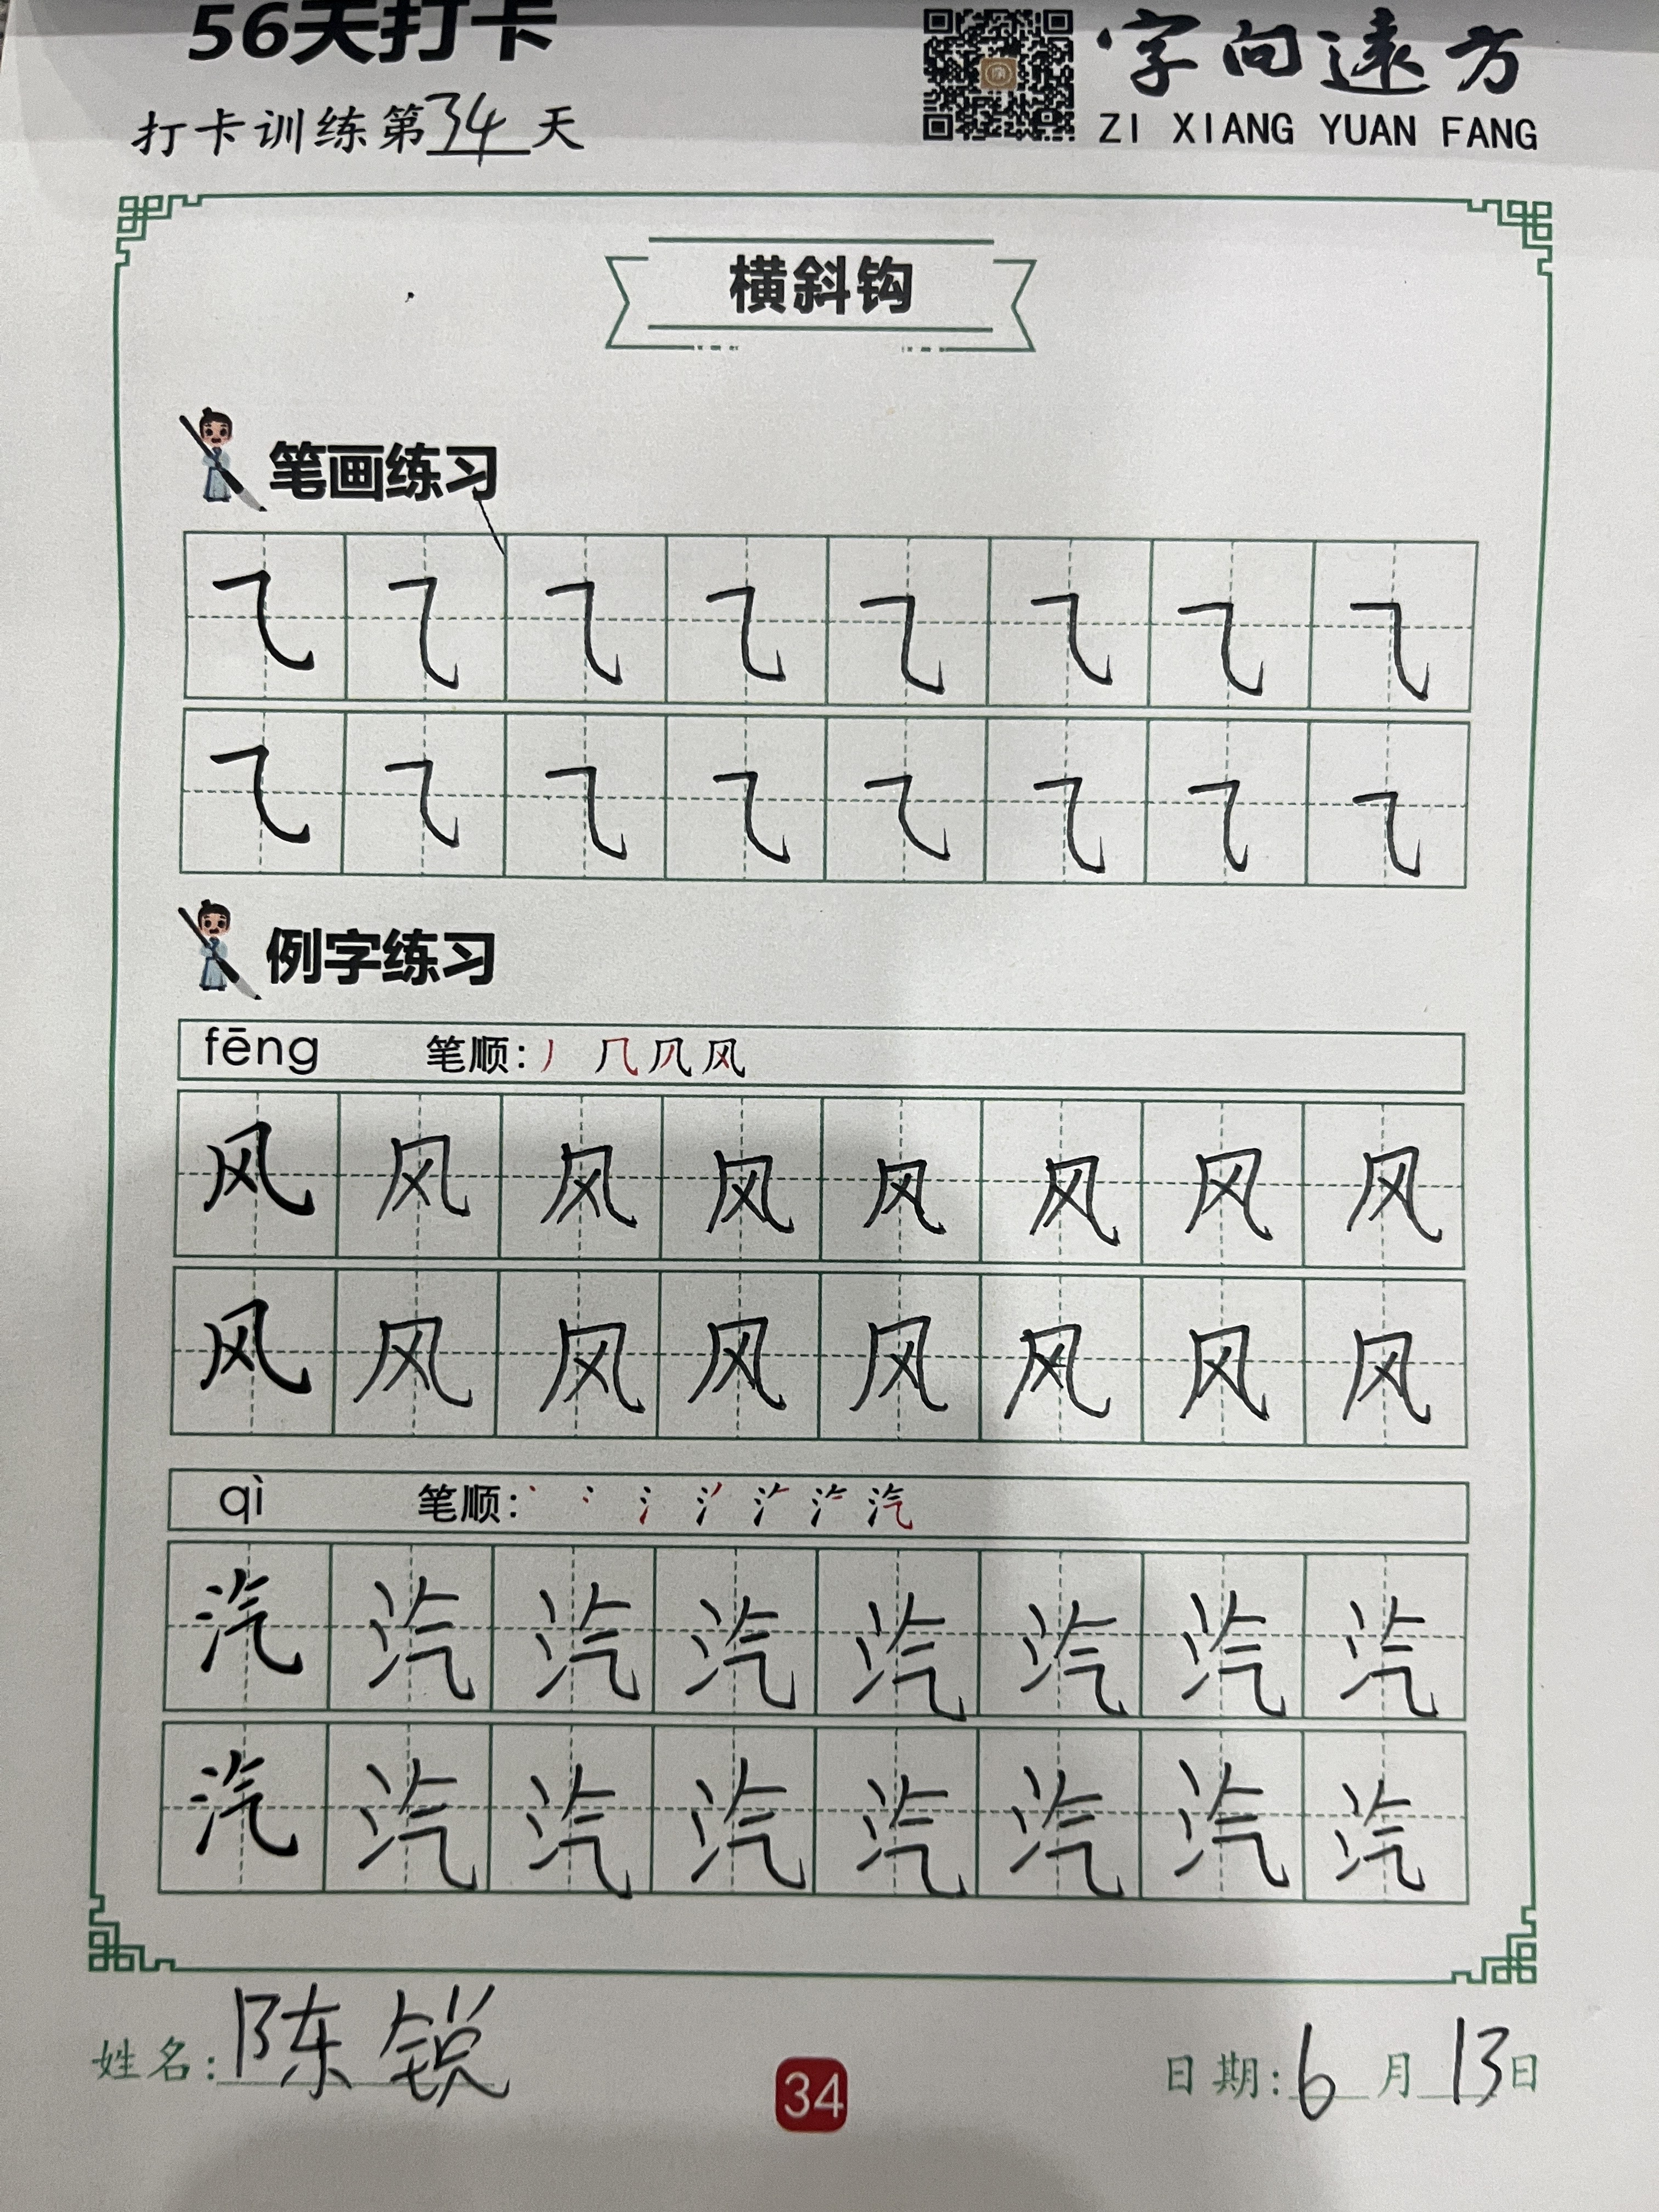 56天打卡
字向遠方
ZI XIANG YUAN FANG
打卡训练第34天
横斜钩
笔画练习
⺄ ⺄ ⺄ ⺄ ⺄ ⺄ ⺄ ⺄
⺄ ⺄ ⺄ ⺄ ⺄ ⺄ ⺄ ⺄
例字练习
fēng 笔顺:丿 几 风 风
风 风 风 风 风 风 风 风
风 风 风 风 风 风 风 风
qì 笔顺:丶 冫 氵 汽
汽 汽 汽 汽 汽 汽 汽 汽
汽 汽 汽 汽 汽 汽 汽 汽
姓名:陈锐
34
日期:6月13日